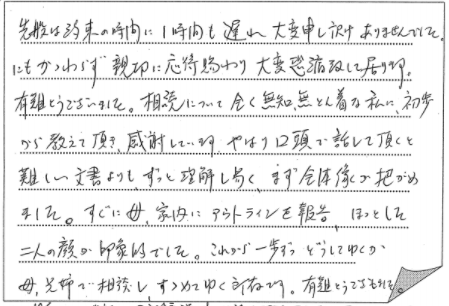 先般は約束の時間に1時間も遅れ大変申し訳ありませんでした。
にもかかわらず親切に応待賜わり大変恐縮致して居ります。
有難とうございました。相続について全く無知、無とん着な私に、初歩
から教えて頂き、感謝しています やはり口頭で話して頂くと
難しい文書よりも、ずっと理解し易く、まず全体像が把がめ
ました。すぐに母、家内にアウトラインを報告、ほっとした
二人の顔が印象的でした。これから一歩ずつ どうしてゆくか
母、兄姉で相談し、すすめてゆく所存です。有難とうございました。